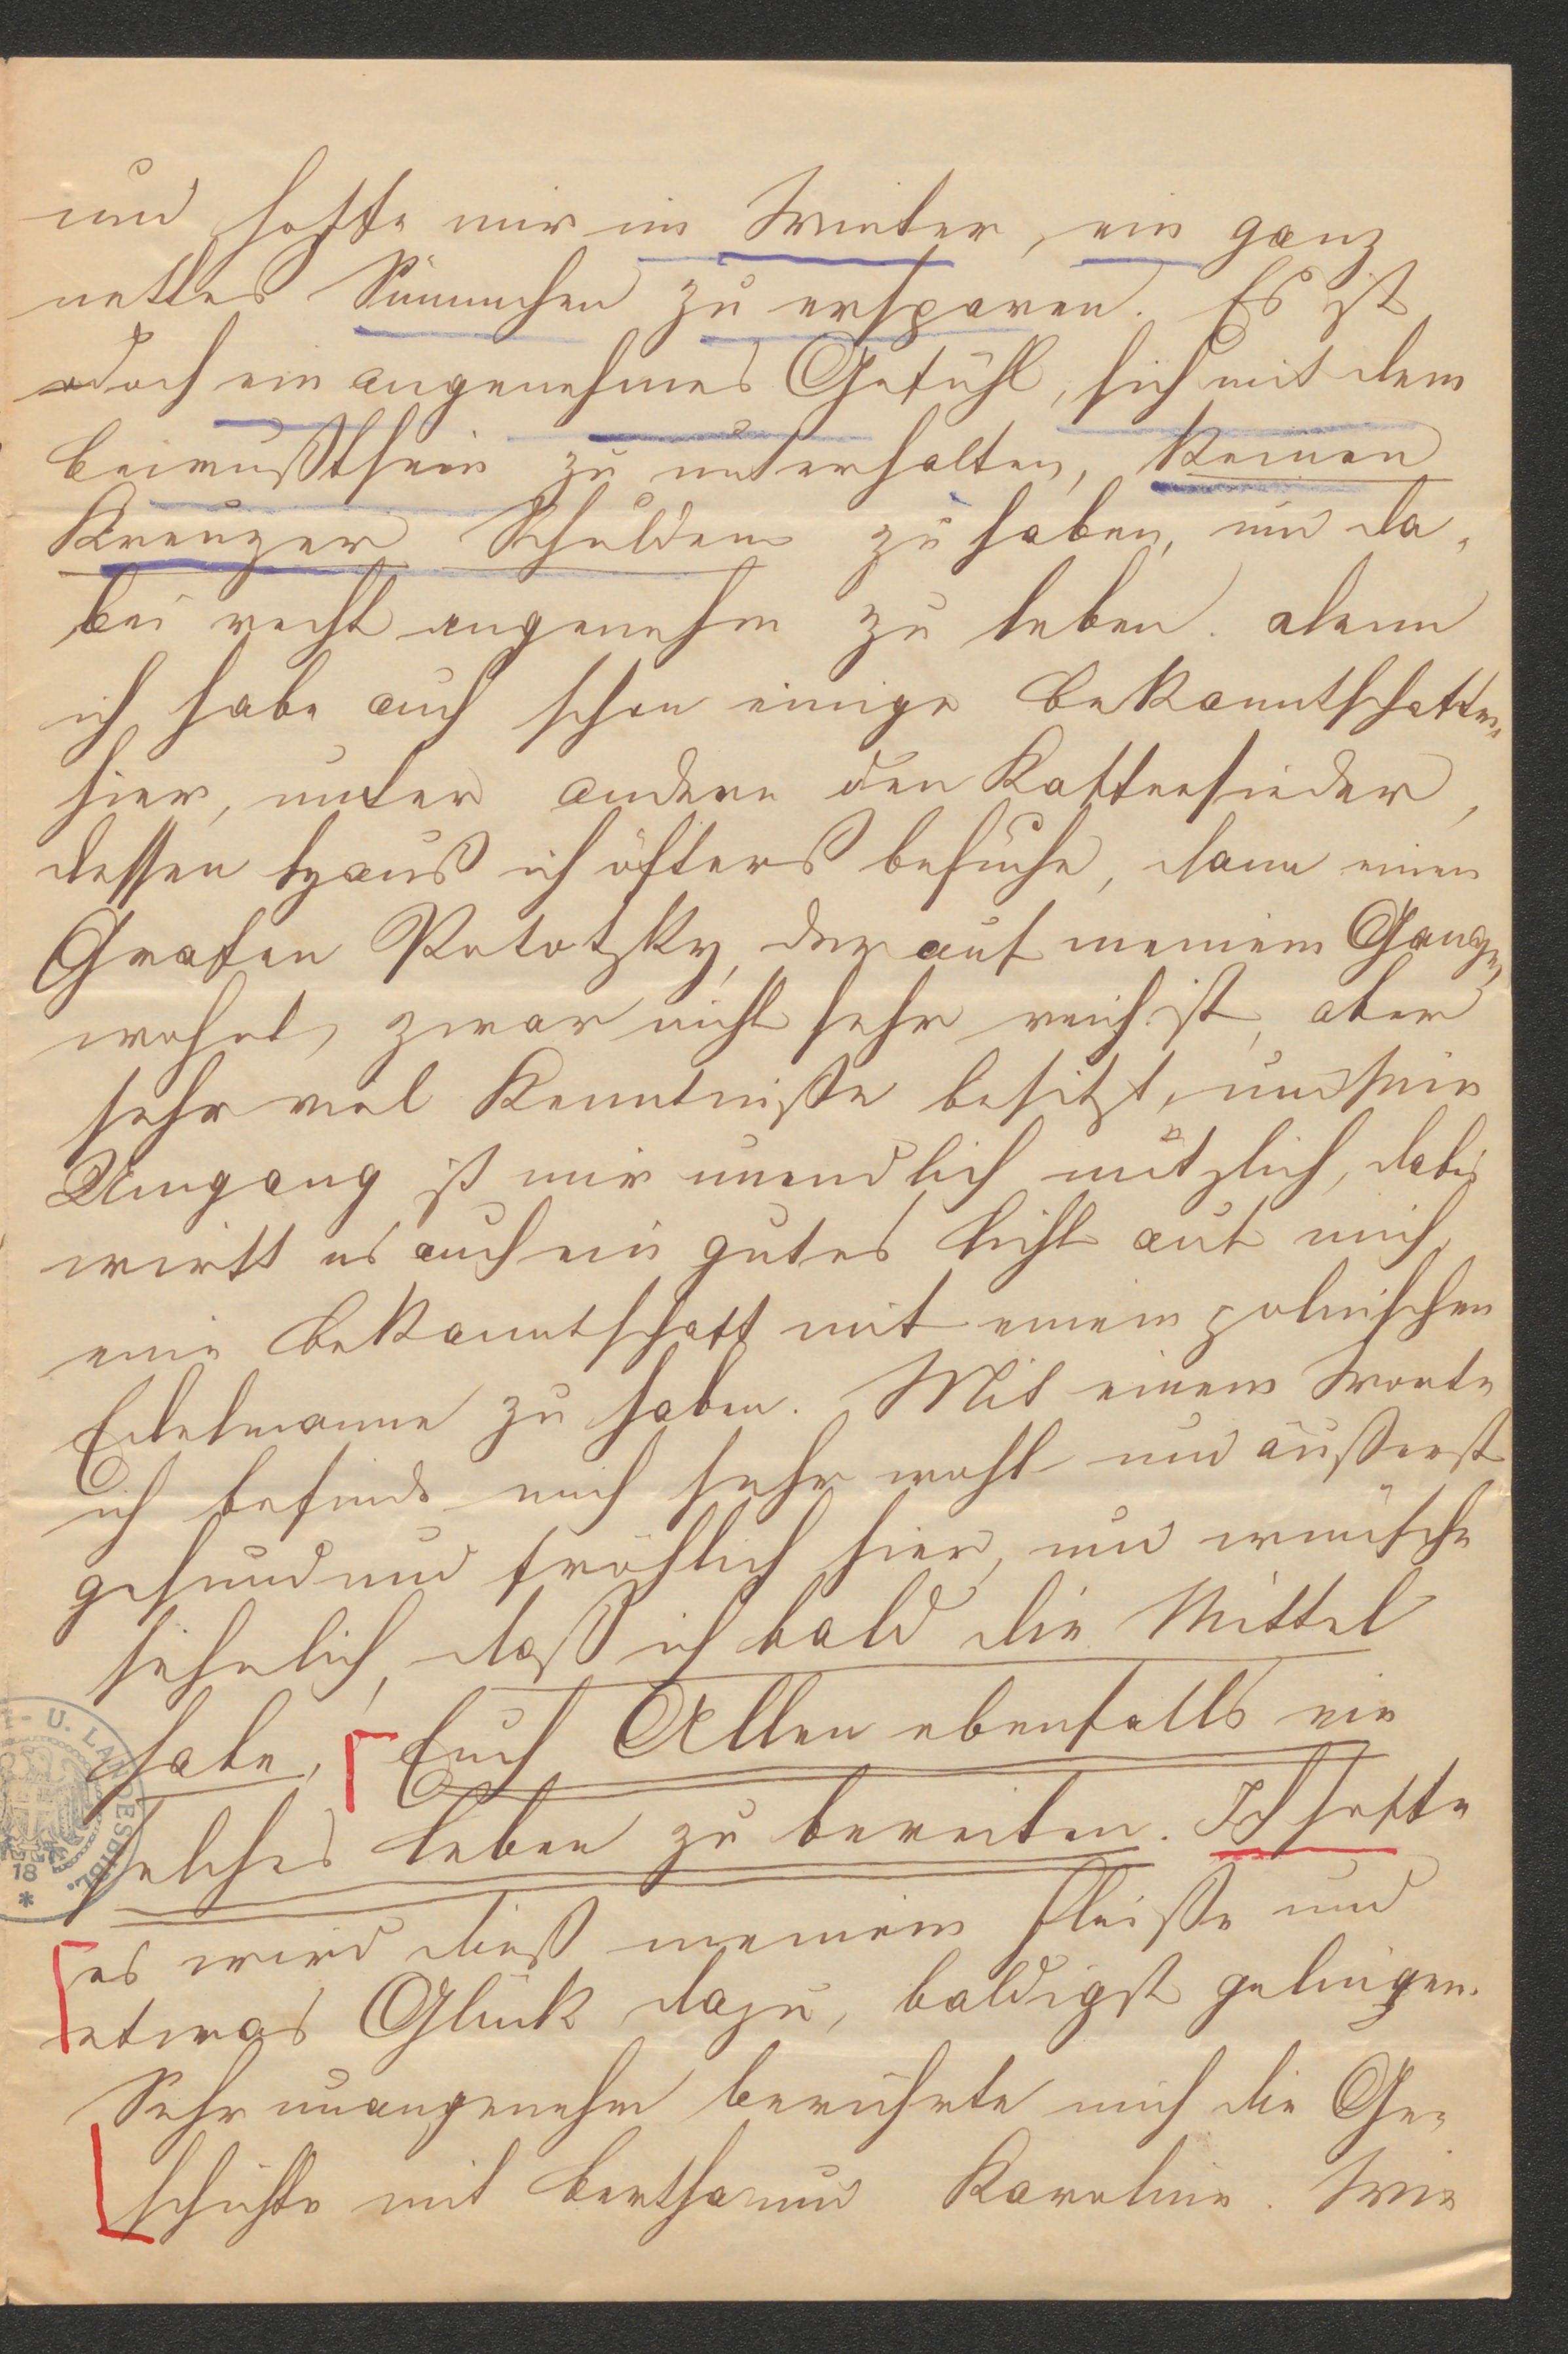 und hoffe mir im Winter, ein ganz
nettes Sümmchen zu ersparen. Es ist
doch ein angenehmes Gefühl, sich mit dem
Bewußtsein zu unterhalten, keinen
Kreuzer Schulden zu haben, und da-
bei recht angenehm zu leben. denn
ich habe auch schon einige Bekanntschaften
hier, unter andern den Kaffeesieder,
dessen Haus ich öfters besuche, dann einen
Grafen Pototzky, der auf meinem Gange
wohnt, zwar nicht sehr reich ist, aber
sehr viel Kenntniße besitzt, und sein
Umgang ist mir unendlich nützlich, dabei
wirft es auch ein gutes Licht auf mich,
eine Bekanntschaft mit einem polnischen
Edelmanne zu haben. Mit einem Worte
ich befinde mich sehr wohl und äußerst
gesund und fröhlich hier, und wünsche
sehnlich, daß ich bald die Mittel
habe, Euch Allen ebenfalls ein
solches Leben zu bereiten. Ich hoffe
es wird dieß meinem Fleiße und
etwas Glück dazu, baldigst gelingen.
Sehr unangenehm berührte mich die Ge-
schichte mit Bertha und Karoline. Wie
U. LANDESBIBL.
18
*